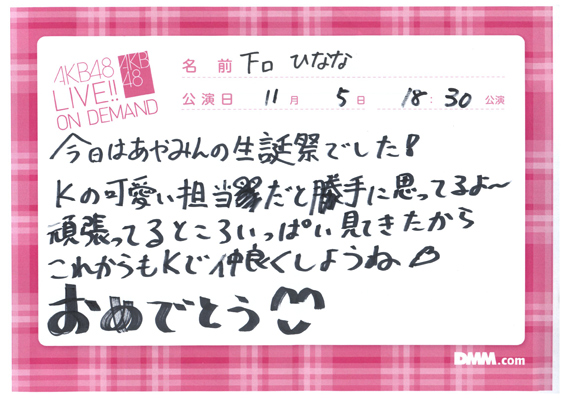 AKB48
LIVE!!
ON DEMAND
AKB
48
名前 下口 ひなな
公演日 11月 5日 18:30 公演
今日はあやみんの生誕祭でした!
Kの可愛い担当だと勝手に思ってるよ〜
頑張ってるところいっぱい見てきたから
これからもKで仲良くしようね♡
おめでとう
DMM.com